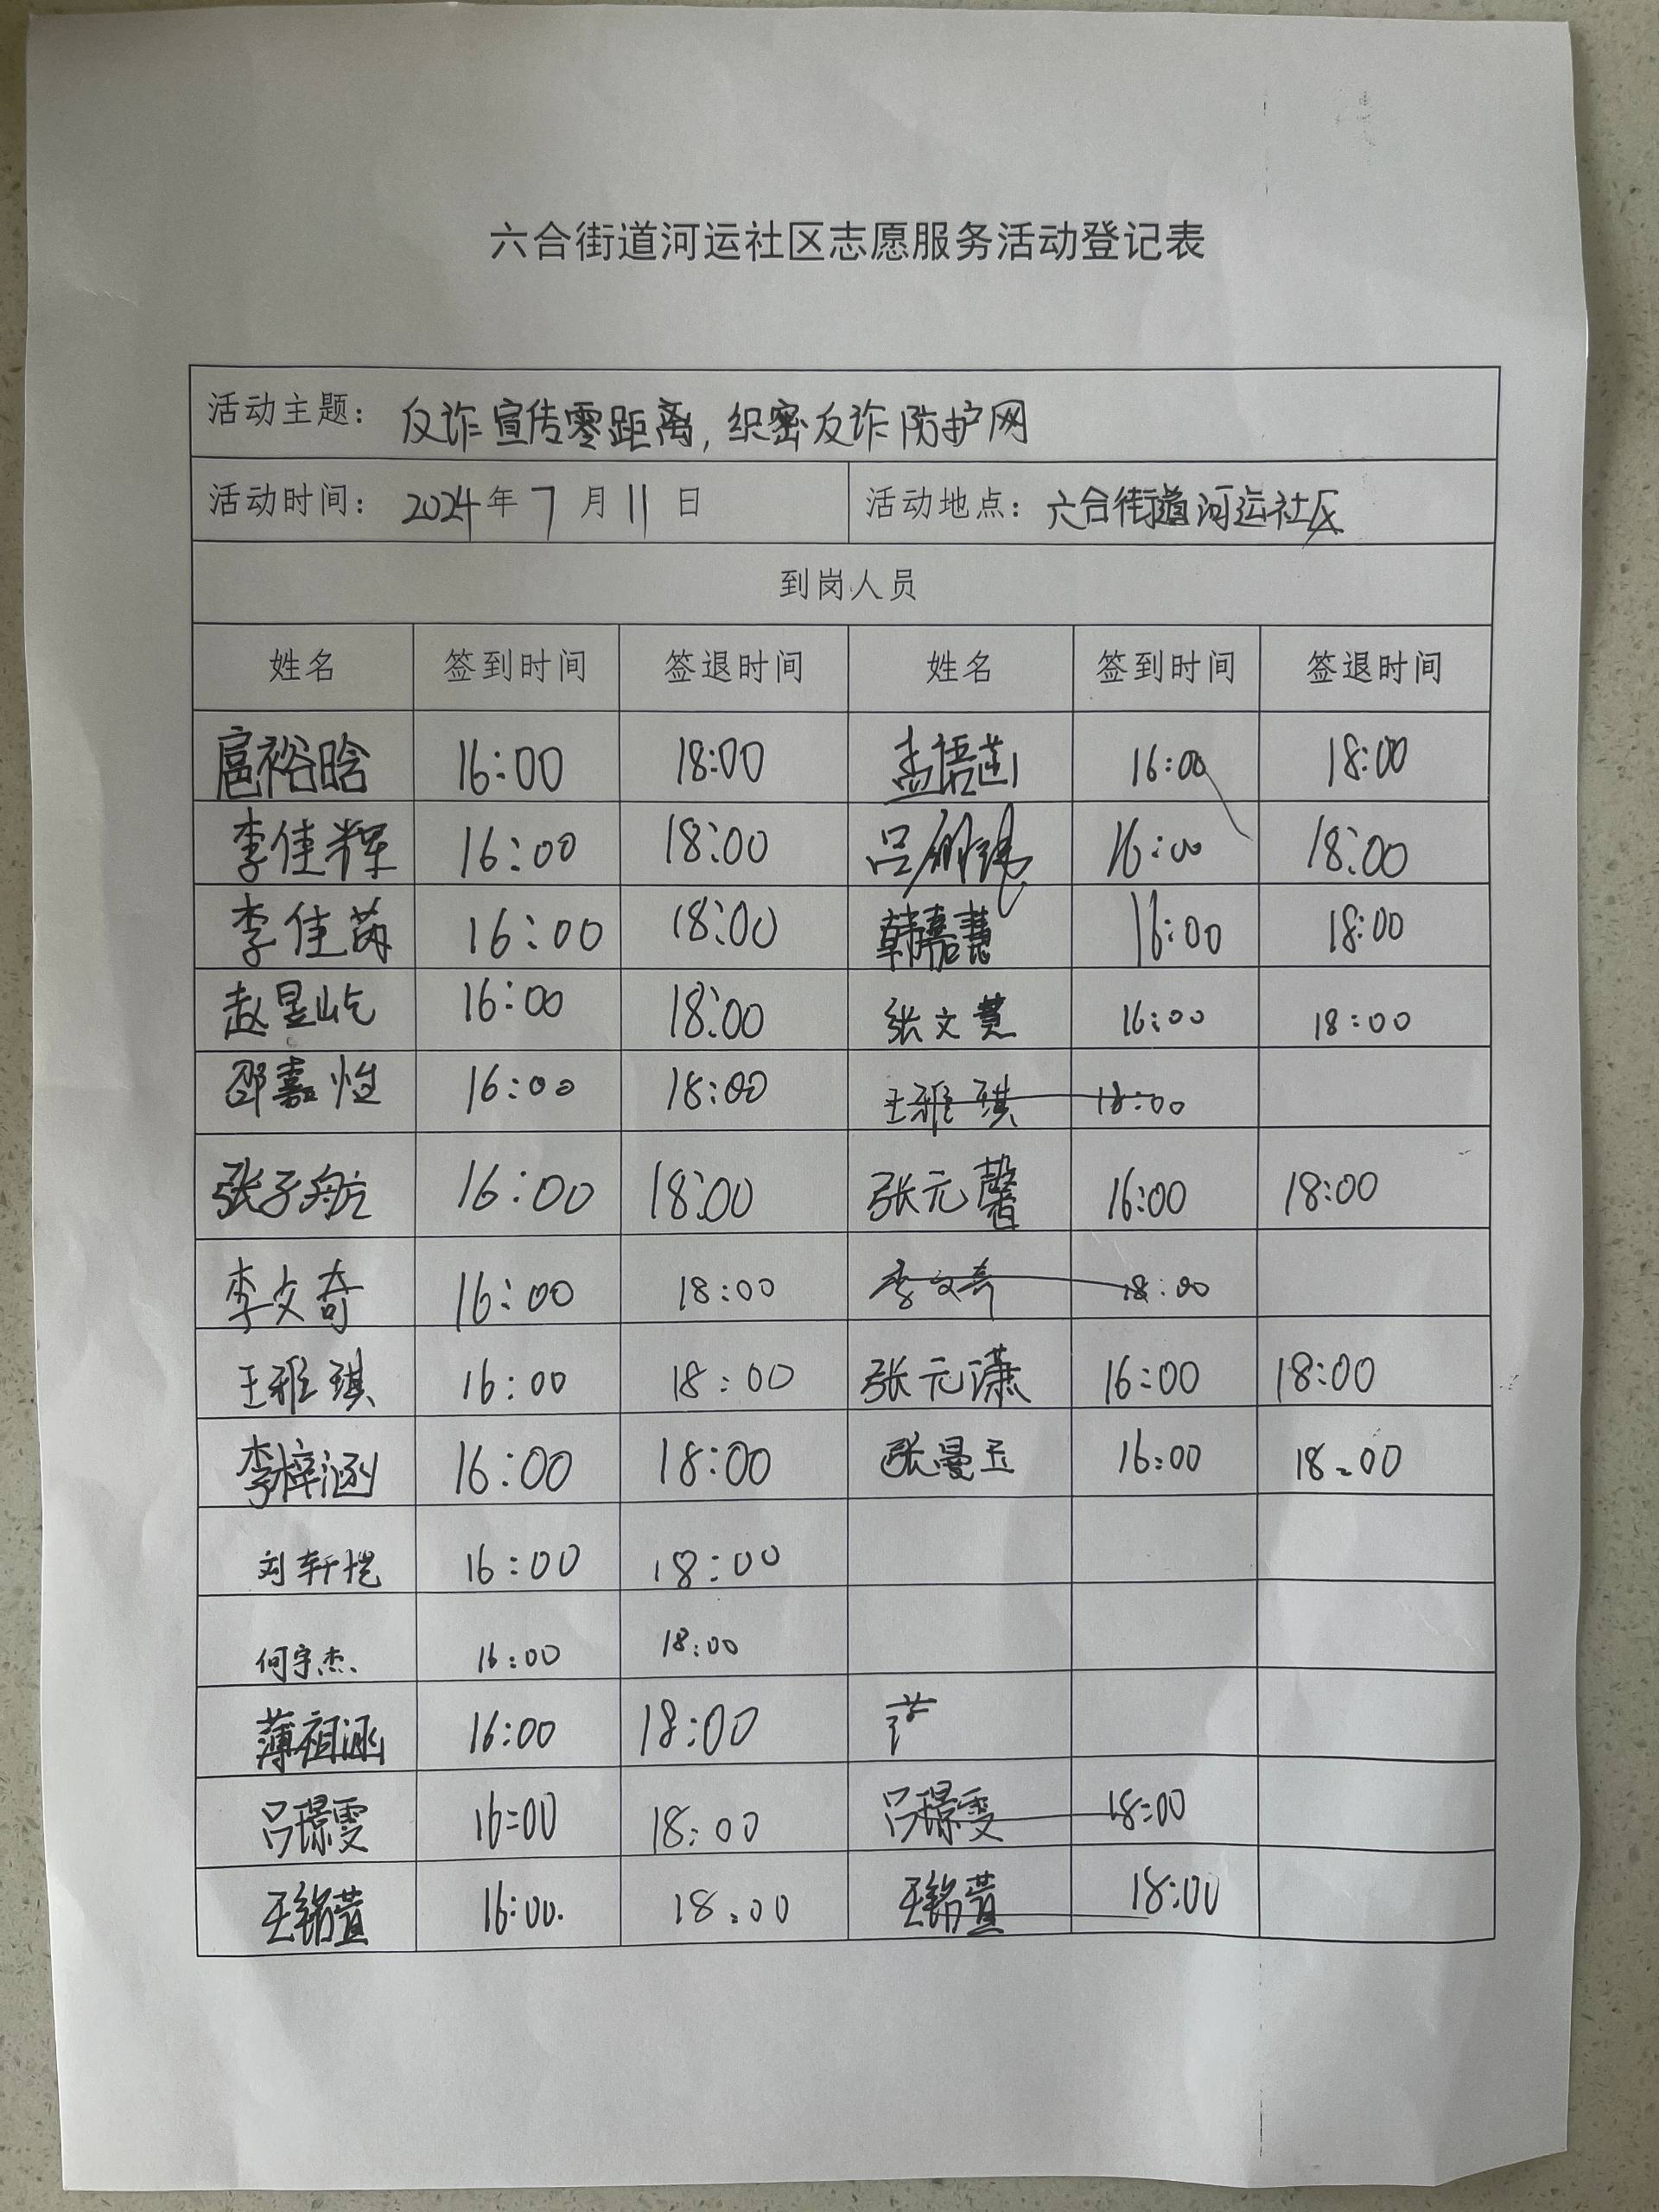 六合街道河运社区志愿服务活动登记表
活动主题：反诈宣传零距离，织密反诈防护网
活动时间：2024年7月11日 活动地点：六合街道河运社区
到岗人员
姓名 签到时间 签退时间 姓名 签到时间 签退时间
扈裕晗 16:00 18:00 孟语 16:00 18:00
李佳辉 16:00 18:00 吕 16:00 18:00
李佳芮 16:00 18:00 韩嘉慧 16:00 18:00
赵昱屹 16:00 18:00 张文慧 16:00 18:00
邵嘉怡 16:00 18:00 王雅琪 18:00
张子航 16:00 18:00 张元馨 16:00 18:00
李文奇 16:00 18:00 李文奇 18:00
王雅琪 16:00 18:00 张元潇 16:00 18:00
李梓涵 16:00 18:00 张曼玉 16:00 18:00
刘轩恺 16:00 18:00
何宇杰 16:00 18:00
薄祖涵 16:00 18:00
吕璟雯 16:00 18:00 吕璟雯 18:00
王铭萱 16:00 18:00 王铭萱 18:00